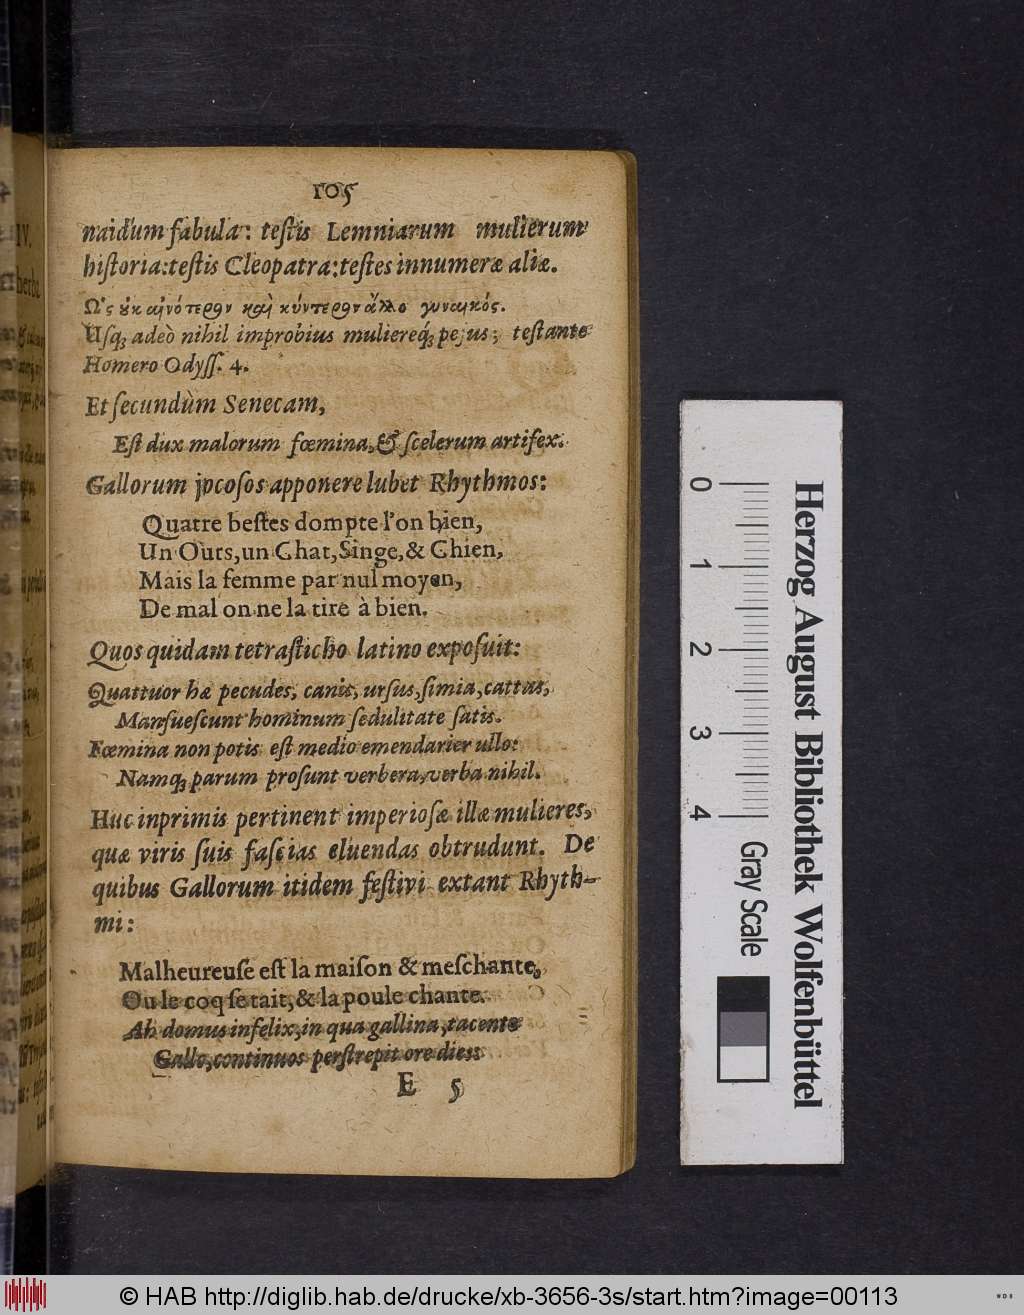 105
naidum fabula: testis Lemniarum mulierum
historia: testis Cleopatra: testes innumeræ aliæ.
Ως ȣκ αἰνότερον καὶ κύντερον ἄλλο γυναικός.
Usq; adeò nihil improbius muliereq́; pejus; testante
Homero Odyss. 4.
Et secundùm Senecam,
Est dux malorum fœmina, & scelerum artifex.
Gallorum jocosos apponere lubet Rhythmos:
Quatre bestes dompte l'on bien,
Un Ours, un Chat, Singe, & Chien,
Mais la femme par nul moyen,
De mal on ne la tire à bien.
Quos quidam tetrasticho latino exposuit:
Quattuor hæ pecudes, canis, ursus, simia, cattus,
Mansuescunt hominum sedulitate satis.
Fœmina non potis est medio emendarier ullo:
Namq; parum prosunt verbera, verba nihil.
Huc inprimis pertinent imperiosæ illæ mulieres,
quæ viris suis fascias eluendas obtrudunt. De
quibus Gallorum itidem festivi extant Rhyth-
mi:
Malheureuse est la maison & meschante,
Ou le coq se tait, & la poule chante.
Ah domus infelix, in qua gallina, tacente
Gallo, continuos perstrepit ore dies:
E 5
0 1 2 3 4
Gray Scale
Herzog August Bibliothek Wolfenbüttel
© HAB http://diglib.hab.de/drucke/xb-3656-3s/start.htm?image=00113